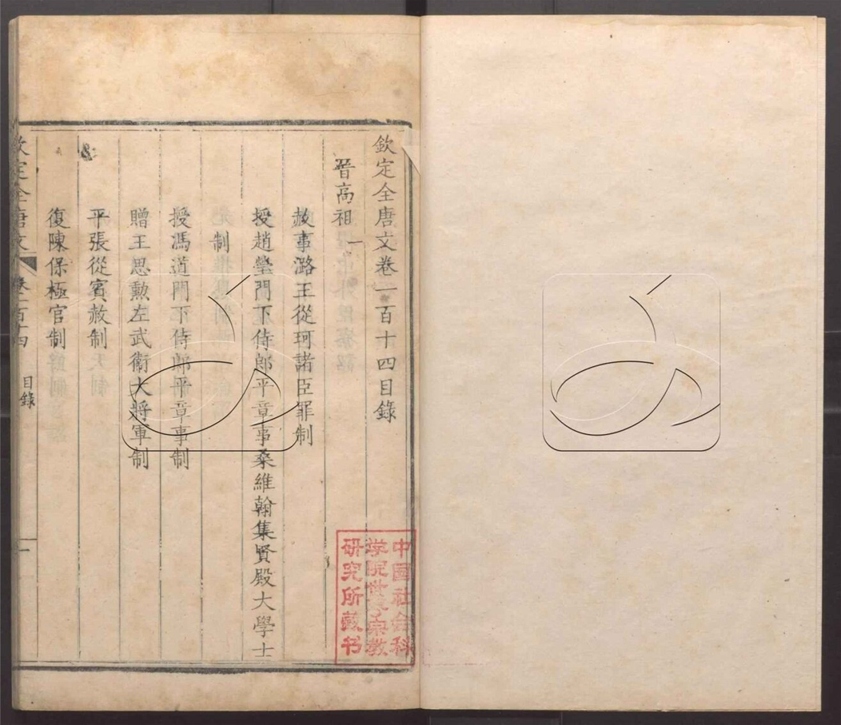 欽定全唐文卷一百十四目錄
晉高祖一
赦事潞王從珂諸臣罪制
授趙瑩門下侍郎平章事桑維翰集賢殿大學士
制
授馮道門下侍郎平章事制
贈王思勲左武衛大將軍制
平張從賓赦制
復陳保極官制
欽定全唐文
卷一百十四 目錄
一
中国社会科
学院世界宗教
研究所藏书